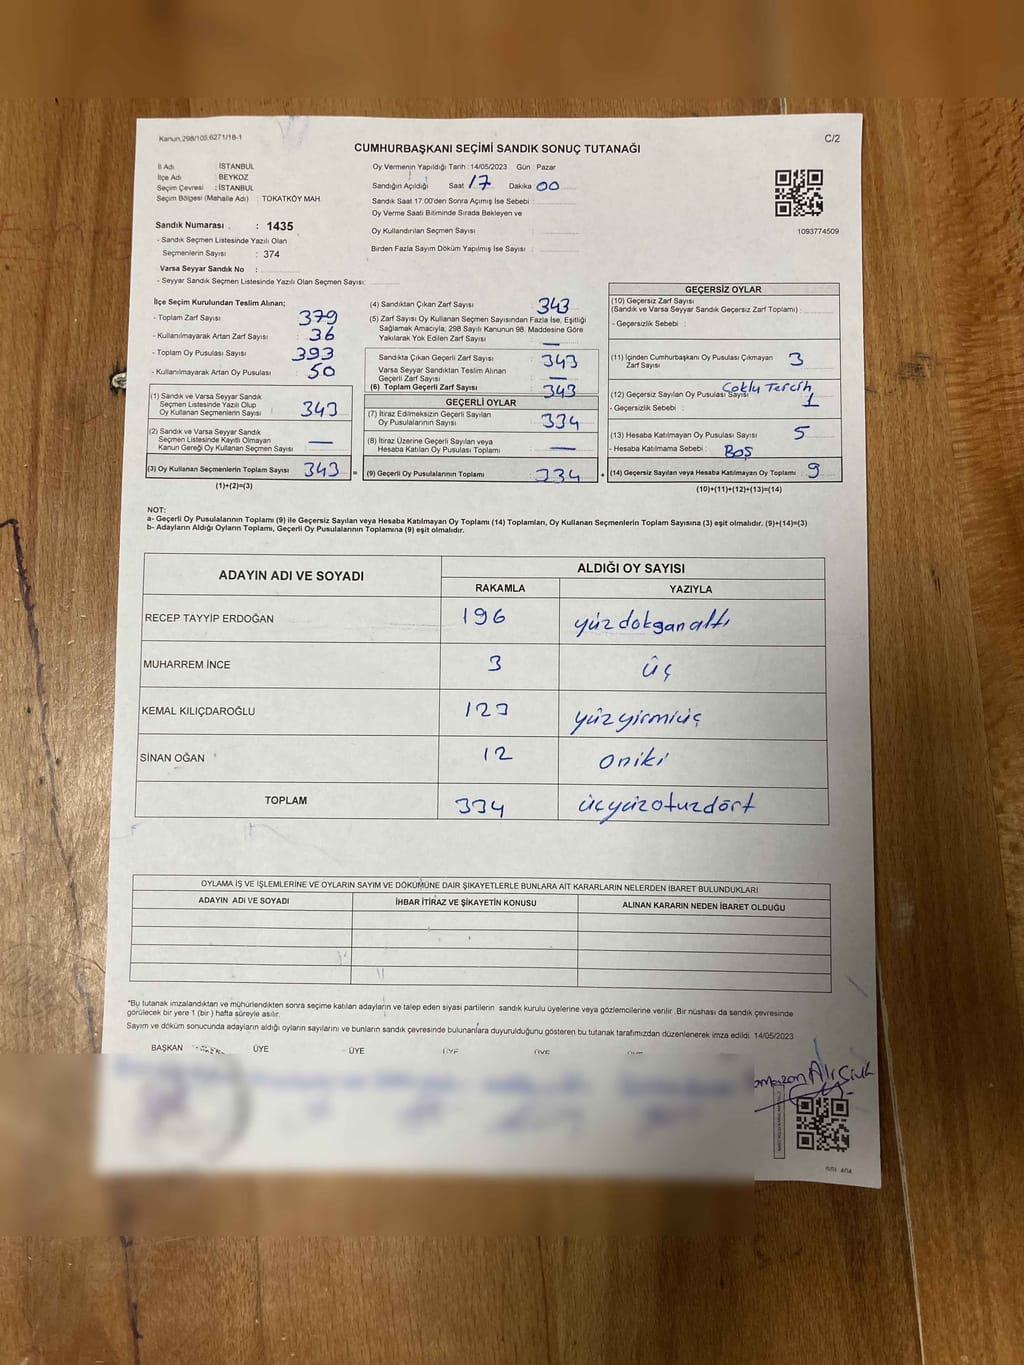 Kanun.298/105.6271/18-1
C/2
CUMHURBAŞKANI SEÇİMİ SANDIK SONUÇ TUTANAĞI
İl Adı : İSTANBUL
İlçe Adı : BEYKOZ
Seçim Çevresi : İSTANBUL
Seçim Bölgesi (Mahalle Adı) : TOKATKÖY MAH.
Sandık Numarası : 1435
- Sandık Seçmen Listesinde Yazılı Olan
Seçmenlerin Sayısı : 374
Varsa Seyyar Sandık No :
- Seyyar Sandık Seçmen Listesinde Yazılı Olan Seçmen Sayısı:
Oy Vermenin Yapıldığı Tarih :14/05/2023 Gün : Pazar
Sandığın Açıldığı Saat 17 Dakika 00
Sandık Saat 17:00'den Sonra Açımış İse Sebebi :
Oy Verme Saati Bitiminde Sırada Bekleyen ve
Oy Kullandırılan Seçmen Sayısı :
Birden Fazla Sayım Döküm Yapılmış İse Sayısı :
1093774509
İlçe Seçim Kurulundan Teslim Alınan;
- Toplam Zarf Sayısı : 379
- Kullanılmayarak Artan Zarf Sayısı : 36
- Toplam Oy Pusulası Sayısı : 393
- Kullanılmayarak Artan Oy Pusulası : 50
(1) Sandık ve Varsa Seyyar Sandık
Seçmen Listesinde Yazılı Olup
Oy Kullanan Seçmenlerin Sayısı : 343
(2) Sandık ve Varsa Seyyar Sandık
Seçmen Listesinde Kayıtlı Olmayan
Kanun Gereği Oy Kullanan Seçmen Sayısı : —
(3) Oy Kullanan Seçmenlerin Toplam Sayısı : 343 =
(1)+(2)=(3)
(4) Sandıktan Çıkan Zarf Sayısı : 343
(5) Zarf Sayısı Oy Kullanan Seçmen Sayısından Fazla İse, Eşitliği
Sağlamak Amacıyla, 298 Sayılı Kanunun 98. Maddesine Göre
Yakılarak Yok Edilen Zarf Sayısı : —
Sandıkta Çıkan Geçerli Zarf Sayısı : 343
Varsa Seyyar Sandıktan Teslim Alınan
Geçerli Zarf Sayısı : —
(6) Toplam Geçerli Zarf Sayısı : 343
GEÇERLİ OYLAR
(7) İtiraz Edilmeksizin Geçerli Sayılan
Oy Pusulalarının Sayısı : 334
(8) İtiraz Üzerine Geçerli Sayılan veya
Hesaba Katılan Oy Pusulaları Toplamı : —
(9) Geçerli Oy Pusulalarının Toplamı : 334 +
GEÇERSİZ OYLAR
(10) Geçersiz Zarf Sayısı
(Sandık ve Varsa Seyyar Sandık Geçersiz Zarf Toplamı) :
- Geçersizlik Sebebi :
(11) İçinden Cumhurbaşkanı Oy Pusulası Çıkmayan
Zarf Sayısı : 3
(12) Geçersiz Sayılan Oy Pusulası Sayısı : 1
- Geçersizlik Sebebi : Çoklu Tercih
(13) Hesaba Katılmayan Oy Pusulası Sayısı : 5
- Hesaba Katılmama Sebebi : Boş
(14) Geçersiz Sayılan veya Hesaba Katılmayan Oy Toplamı : 9
(10)+(11)+(12)+(13)=(14)
NOT:
a- Geçerli Oy Pusulalarının Toplamı (9) ile Geçersiz Sayılan veya Hesaba Katılmayan Oy Toplamı (14) Toplamları, Oy Kullanan Seçmenlerin Toplam Sayısına (3) eşit olmalıdır. (9)+(14)=(3)
b- Adayların Aldığı Oyların Toplamı, Geçerli Oy Pusulalarının Toplamına (9) eşit olmalıdır.
ADAYIN ADI VE SOYADI ALDIĞI OY SAYISI
RAKAMLA YAZIYLA
RECEP TAYYİP ERDOĞAN 196 yüzdoksanaltı
MUHARREM İNCE 3 üç
KEMAL KILIÇDAROĞLU 123 yüzyirmiüç
SİNAN OĞAN 12 oniki
TOPLAM 334 üçyüzotuzdört
OYLAMA İŞ VE İŞLEMLERİNE VE OYLARIN SAYIM VE DÖKÜMÜNE DAİR ŞİKAYETLERLE BUNLARA AİT KARARLARIN NELERDEN İBARET BULUNDUKLARI
ADAYIN ADI VE SOYADI İHBAR İTİRAZ VE ŞİKAYETİN KONUSU ALINAN KARARIN NEDEN İBARET OLDUĞU
*Bu tutanak imzalandıktan ve mühürlendikten sonra seçime katılan adayların ve talep eden siyasi partilerin sandık kurulu üyelerine veya gözlemcilerine verilir .Bir nüshası da sandık çevresinde
görülecek bir yere 1 (bir ) hafta süreyle asılır.
Sayım ve döküm sonucunda adayların aldığı oyların sayılarını ve bunların sandık çevresinde bulunanlara duyurulduğunu gösteren bu tutanak tarafımızdan düzenlenerek imza edildi. 14/05/2023
BAŞKAN ÜYE ÜYE ÜYE ÜYE